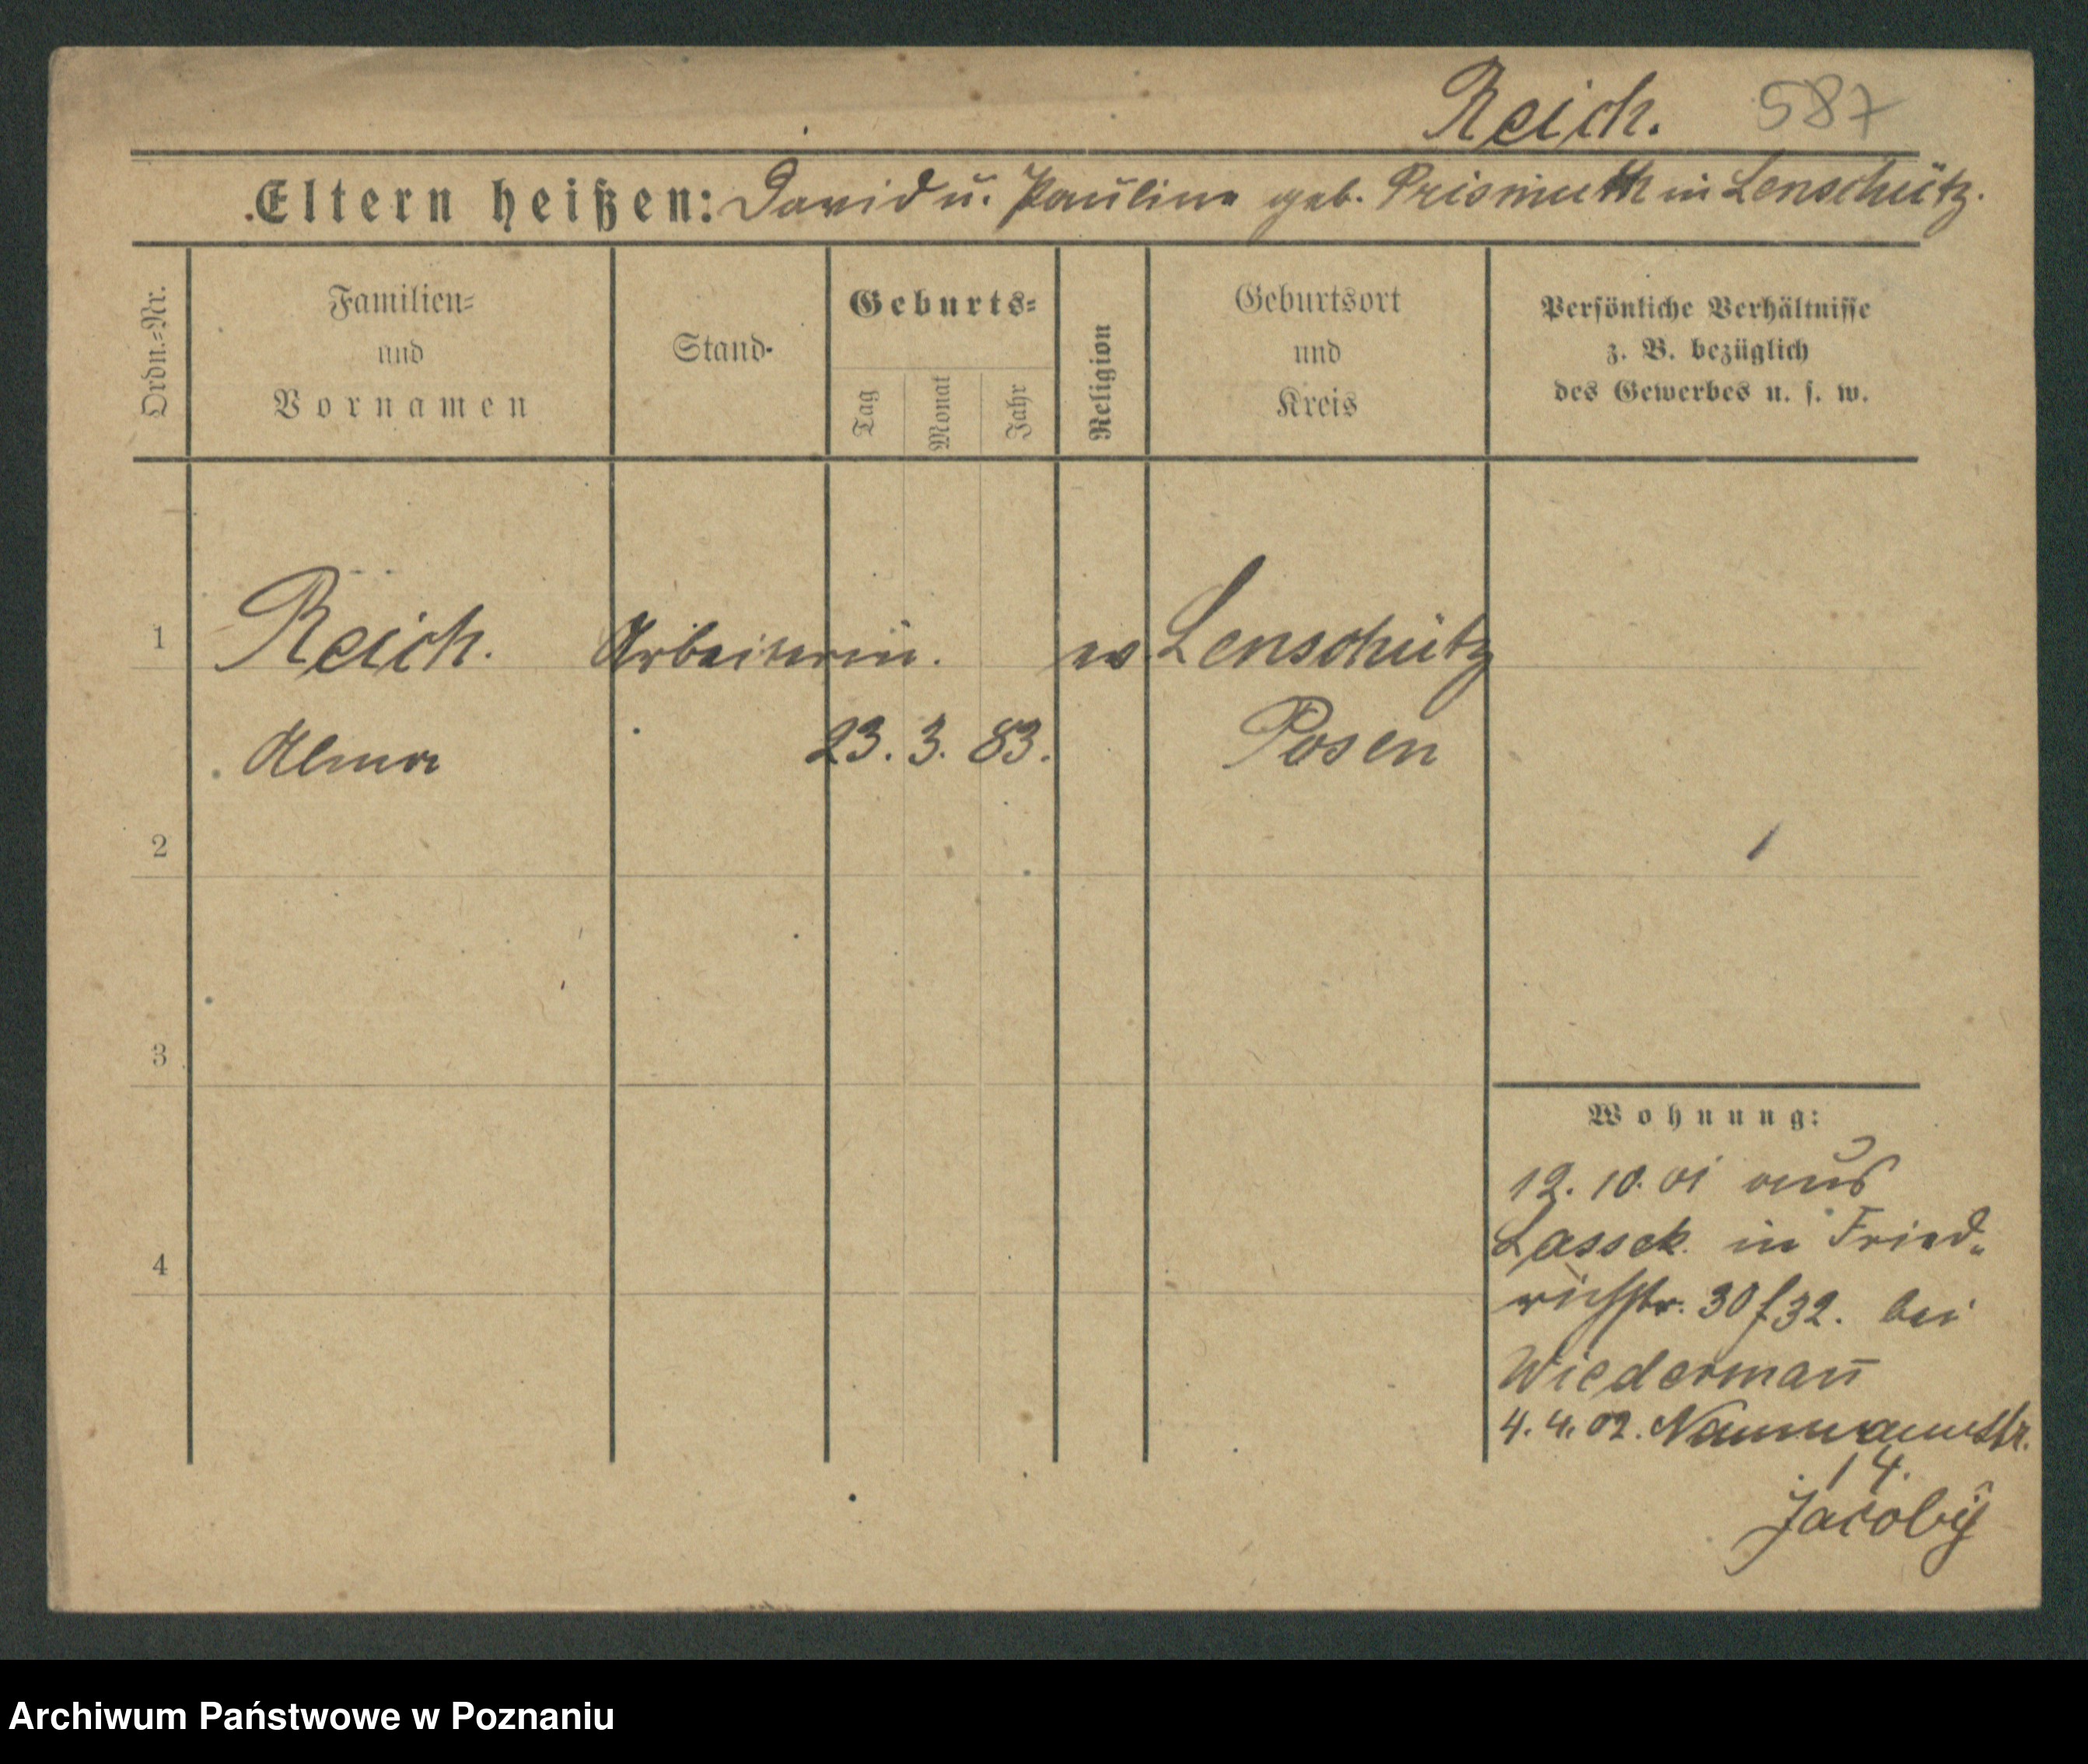 Reich. 587
Eltern heißen: David u. Pauline geb. Prismuth in Lenschütz.
Ordn.=Nr.
Familien=
und
Vornamen
Stand
Geburts=
Tag
Monat
Jahr
Religion
Geburtsort
und
Kreis
Persönliche Verhältnisse
z. B. bezüglich
des Gewerbes u. s. w.
1 Reich. Arbeiterin. ev. Lenschütz
Alma 23. 3. 83. Posen
2
3
4
Wohnung:
12. 10. 01 aus
Lassek in Fried-
richstr. 30/32. bei
Wiedermañ
4. 4. 02. Naumannstr.
14.
Jacoby
Archiwum Państwowe w Poznaniu